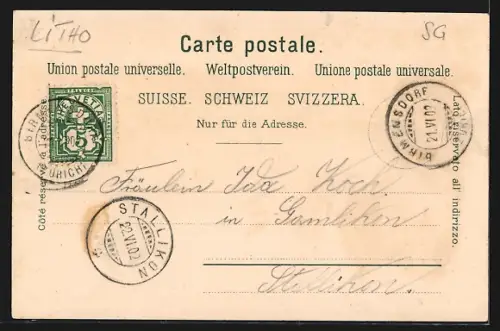 LiTHO
SG
Carte postale.
Union postale universelle. Weltpostverein. Unione postale universale.
SUISSE. SCHWEIZ SVIZZERA.
Nur für die Adresse.
Côté réservé à l'adresse
Lato riservato all' indirizzo.
HELVETIA
5
BIRMENSDORF
21.VI.02
STALLIKON
22.VI.02
Fräulein Ida Koch
in Gamlikon
Stallikon.